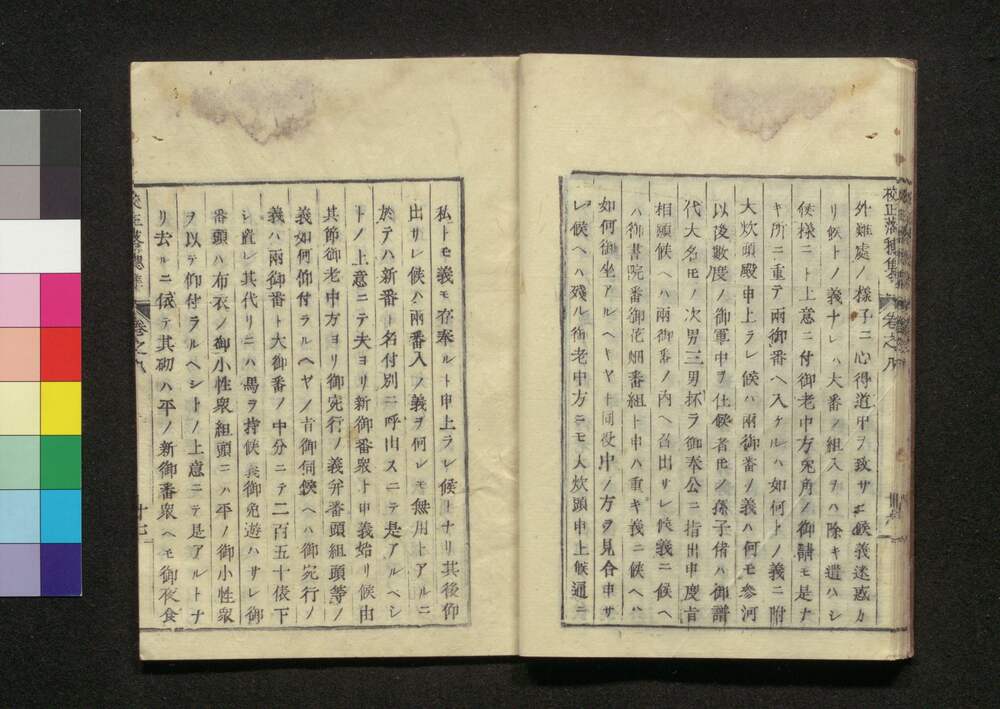 校正落穂集 卷之九
外難處ノ樣子ニ心得道中ヲ致サセ候義迷惑カ
リ候トノ義ナレハ大番ノ組入ヲハ除キ遣ハシ
候樣ニト上意ニ付御老中方兎角ノ御請モ是ナ
キ所ニ重テ兩御番ヘ入ケルハ如何トノ義ニ附
大炊頭殿申上ラレ候ハ兩御番ノ義ハ何モ參河
以後數度ノ御軍中ヲ仕候者トモノ孫子倂ハ御譜
代大名モノ次男三男抔ラ御奉公ニ指出申度旨
相願候ヘハ兩御番ノ内ヘ召出サレ候義ニ候ヘ
ハ御書院番御花畑番組ト申ハ重キ義ニ候ヘハ
如何御坐アルヘキヤト同役中ノ方ヲ見合申サ
レ候ヘハ殘ル御老中方ニモ大炊頭申上候通ニ
私トモ義モ存奉ルト申上ラレ候トナリ其後仰
出サレ候ハ兩番入ノ義ヲ何レモ無用トアルニ
於テハ新番ト名付別ニ呼出スニテ是アルヘシ
トノ上意ニテ夫ヨリ新御番衆ト申義始リ候由
其節御老中方ヨリ御宛行ノ義幷番頭組頭等ノ
義如何仰付ラルヘキヤノ旨御伺候ヘハ御宛行ノ
義ハ兩御番ト大御番ノ中分ニテ二百五十俵下
シ置レ其代リニハ馬ヲ持候義御免遊ハサレ御
番頭ハ布衣ノ御小性衆組頭ニハ平ノ御小性衆
ヲ以テ仰付ラルヘシトノ上意ニテ是アルトナ
リ去ルニ依テ其砌ハ平ノ新御番衆ヘモ御夜食
校正落穂集 卷之九 十七